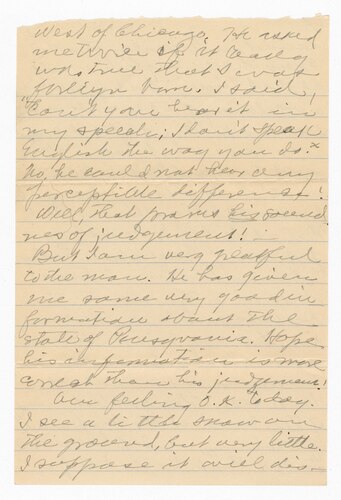 West of Chicago. He asked
me twice if it really
was true that I was
foreign born. I said,
"Can't you hear it in
my speech; I don't speak
English the way you do."
No, he could not hear any
perceptible difference!
Well, that proves his sound
ness of judgement! -
But I am very grateful
to the man. He has given
me some very good in
formation about the
state of Pensylvania. Hope
his information is more
correct than his judgement!
Am feeling O.K. today.
I see a little snow on
the ground, but very little.
I suppose it will dis-